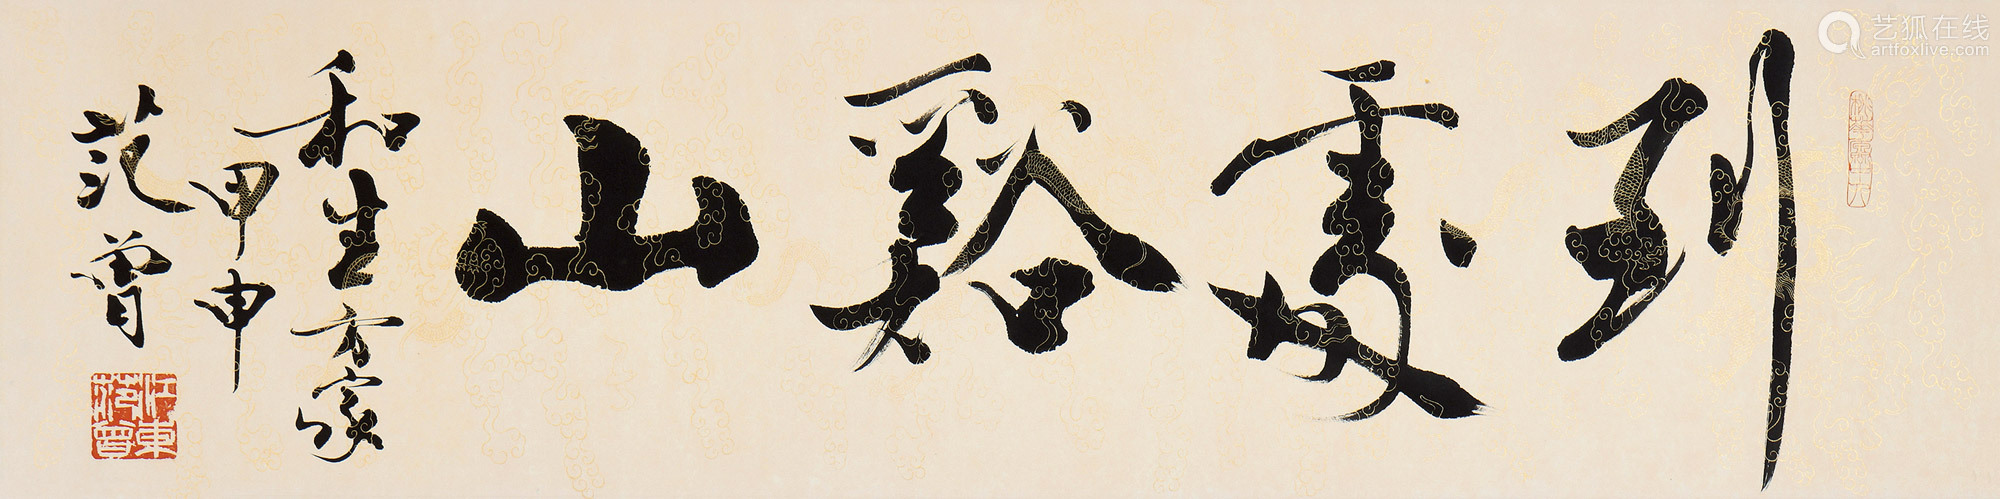 到處谿山
和生方家
甲申
范曾
江東范曾
艺狐在线
artfoxlive.com